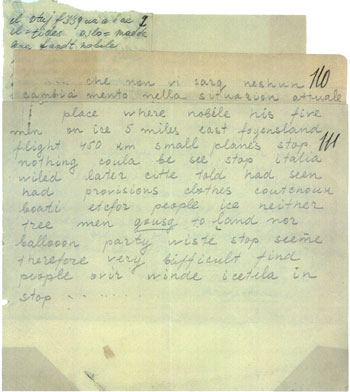 1
... che non vi sarg neshun 110
cambia mento nella situazion attuale
place where nobile his five
men on ice 5 miles east foyensland 111
flight 450 km small planes stop
nothing coula be see stop italia
wiled later citte told had seen
had provisions clothes coutchoux
boati etcfor people ice neither
tree men gousg to land nor
ballooon party wiste stop seeme
therefore very bifficult find
people ovir winde icetela in
stop . . . . . . .